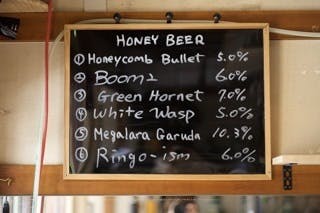 HONEY BEER
① Honeycomb Bullet 5.0%
② Boom2 6.0%
③ Green Hornet 7.0%
④ White Wasp 5.0%
⑤ Megalara Garuda 10.3%
⑥ Ringo-ism 6.0%